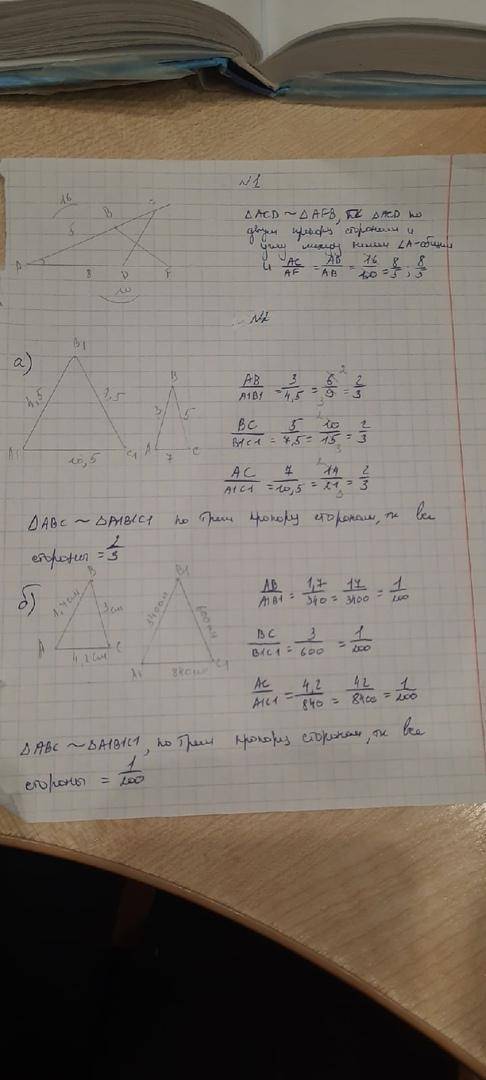 N1
16
B
5
A
8
D
F
10
△ACD ~ △AFB, т.к △ACD по
двум пропорц сторонам и
углу между ними ∠A-общий
и AC/AF = AD/AB = 16/10 = 8/5 ; 8/5
N2
а)
B1
4,5
7,5
A1
10,5
C1
B
3
5
A
7
C
AB/A1B1 = 3/4,5 = 6/9 = 2/3
BC/B1C1 = 5/7,5 = 10/15 = 2/3
AC/A1C1 = 7/10,5 = 14/21 = 2/3
△ABC ~ △A1B1C1 по трем пропорц сторонам, тк все
стороны = 2/3
б)
B
1,7см
3см
A
C
4,2см
B1
340см
600см
A1
840см
C1
AB/A1B1 = 1,7/340 = 17/3400 = 1/200
BC/B1C1 = 3/600 = 1/200
AC/A1C1 = 4,2/840 = 42/8400 = 1/200
△ABC ~ △A1B1C1, по трем пропорц сторонам, тк все
стороны = 1/200